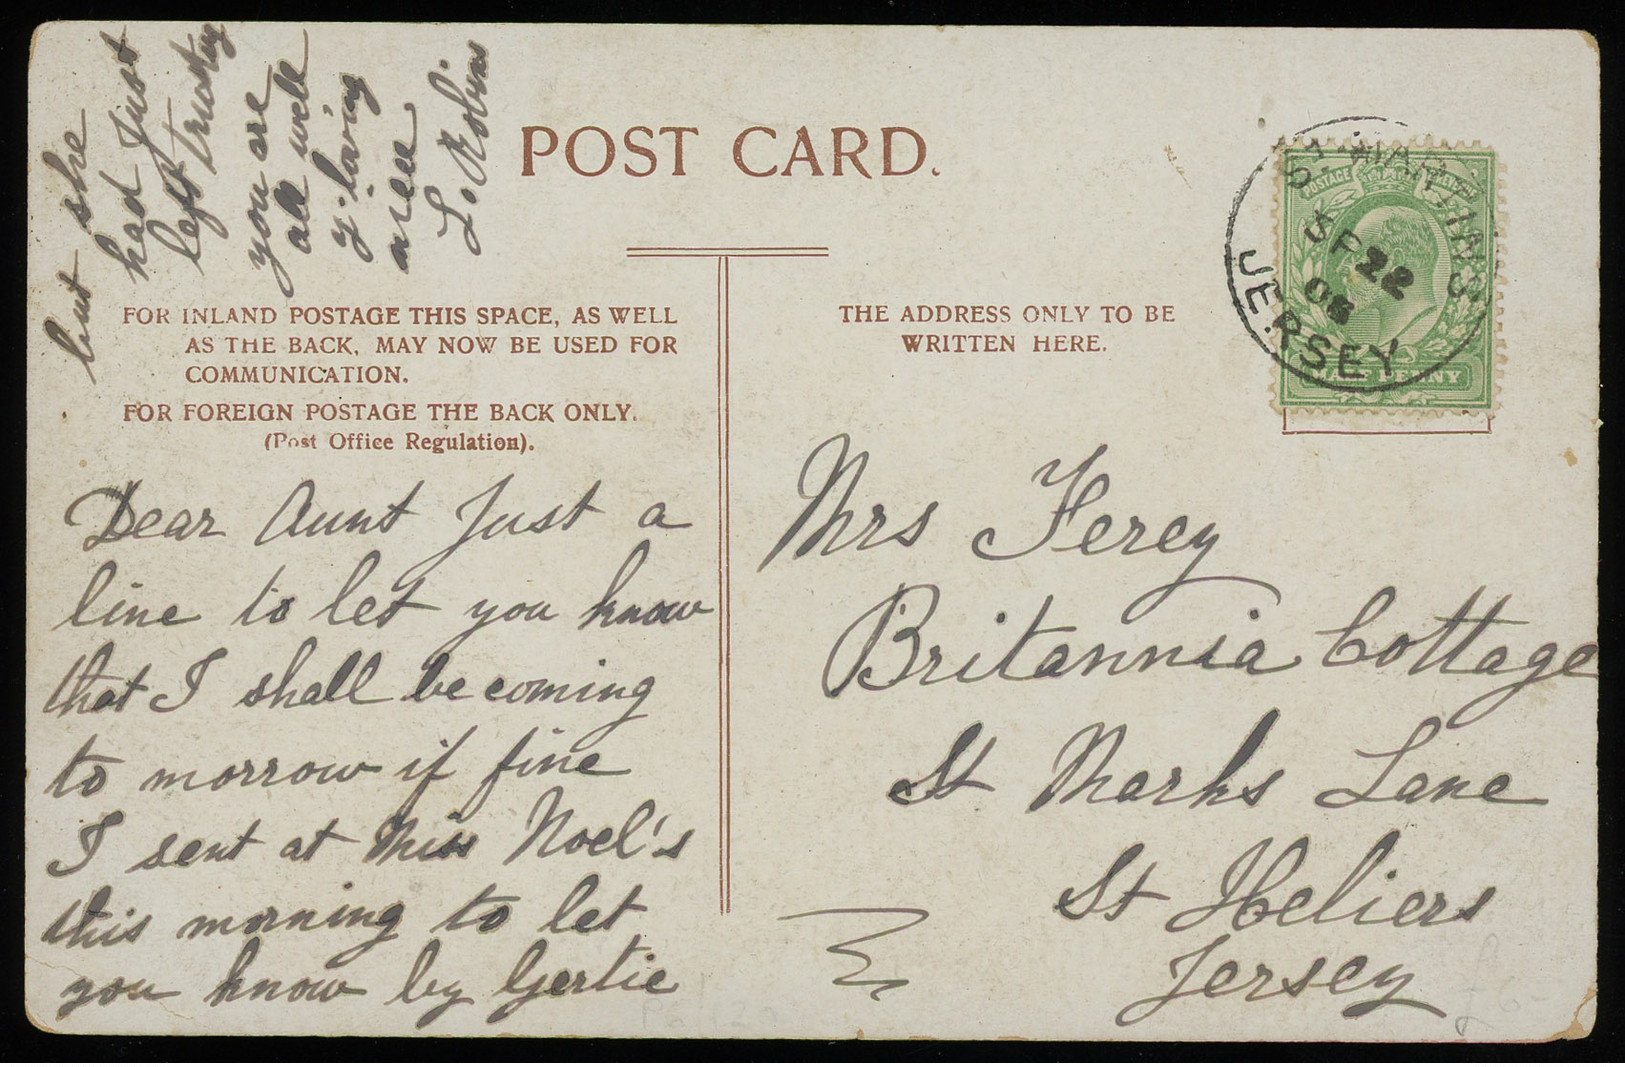 POST CARD.
FOR INLAND POSTAGE THIS SPACE, AS WELL
AS THE BACK, MAY NOW BE USED FOR
COMMUNICATION.
FOR FOREIGN POSTAGE THE BACK ONLY.
(Post Office Regulation).
THE ADDRESS ONLY TO BE
WRITTEN HERE.
ST MARTINS
22
JERSEY
POSTAGE
HALF PENNY
Dear Aunt Just a
line to let you know
that I shall be coming
to morrow if fine
I sent at Miss Noel's
this morning to let
you know by Gertie
but she
had Just
left trusting
you are
all well
y. loving
niece
L. Robins
Mrs Ferey
Britannia Cottage
St Marks Lane
St Heliers
Jersey